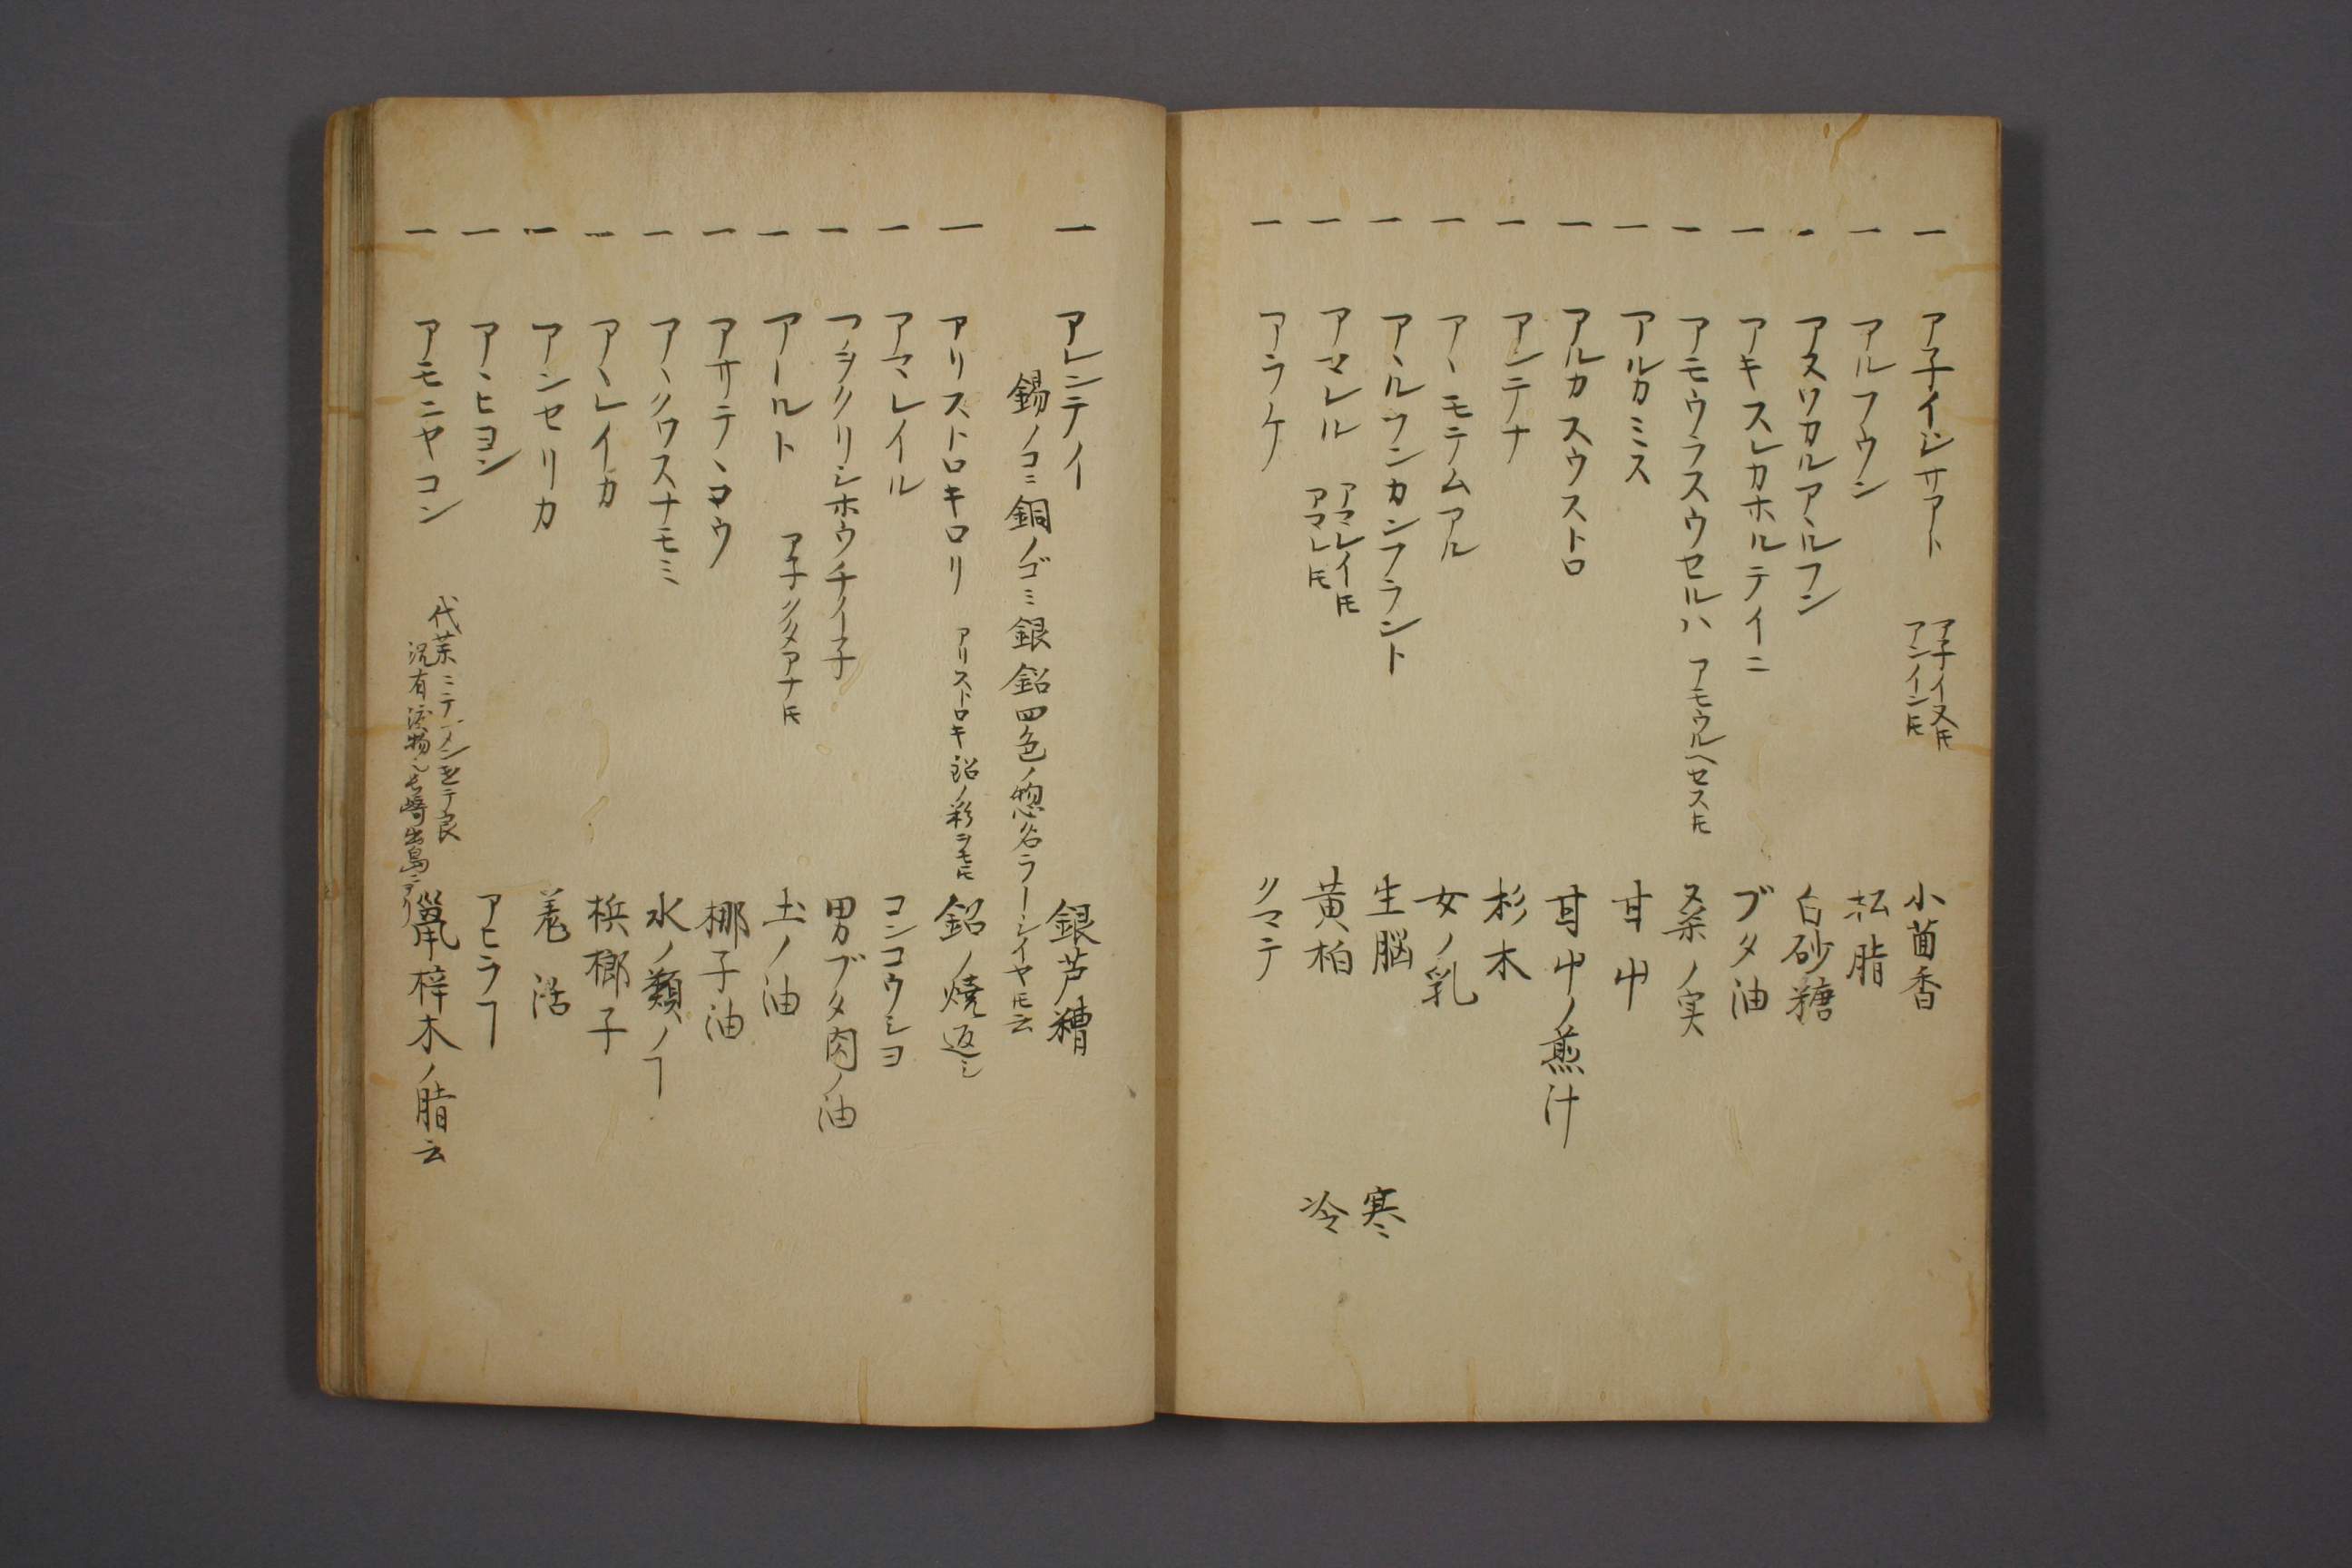 一 アネイシサアト アネイス又ﾄﾓ アンイーンﾄﾓ 小茴香
一 アルフウン 松脂
一 アスワカルアヽルフン 白砂糖
一 アキスレカホルテイニ ブタ油
一 アモウラスウセルハ アモウルヘセスﾄﾓ 桑ノ実
一 アルカミス 甘中
一 アルカスウストロ 甘中ノ煎汁
一 アンテナ 杉木
一 アヽモテムアル 女ノ乳
一 アヽルワンカンフラント 生脳 寒
一 アマレル アマレイﾄﾓ アマレﾄﾓ 黄柏 冷
一 アラケ クマテ
一 アレンテイ 銀芦糟
錫ノコミ銅ノゴミ銀鉛四色ノ惣名ラーシイヤﾄﾓ云
一 アリストロキロリ アリストロキ鉛ノ彩ヲモﾄﾓ 鉛ノ焼返シ
一 アマヽレイル コンコウシヨ
一 アヲクリシホウチイ子 男ブタ肉ノ油
一 アールト ア子クタアナﾄﾓ 土ノ油
一 アサテヽコウ 椰子油
一 アヽクワスナモミ 水ノ類ノヿ
一 アヽレイカ 梹榔子
一 アンセリカ 羌活
一 アヽヒヨン アヒラヿ
一 アモニヤコン 梓木ノ脂云